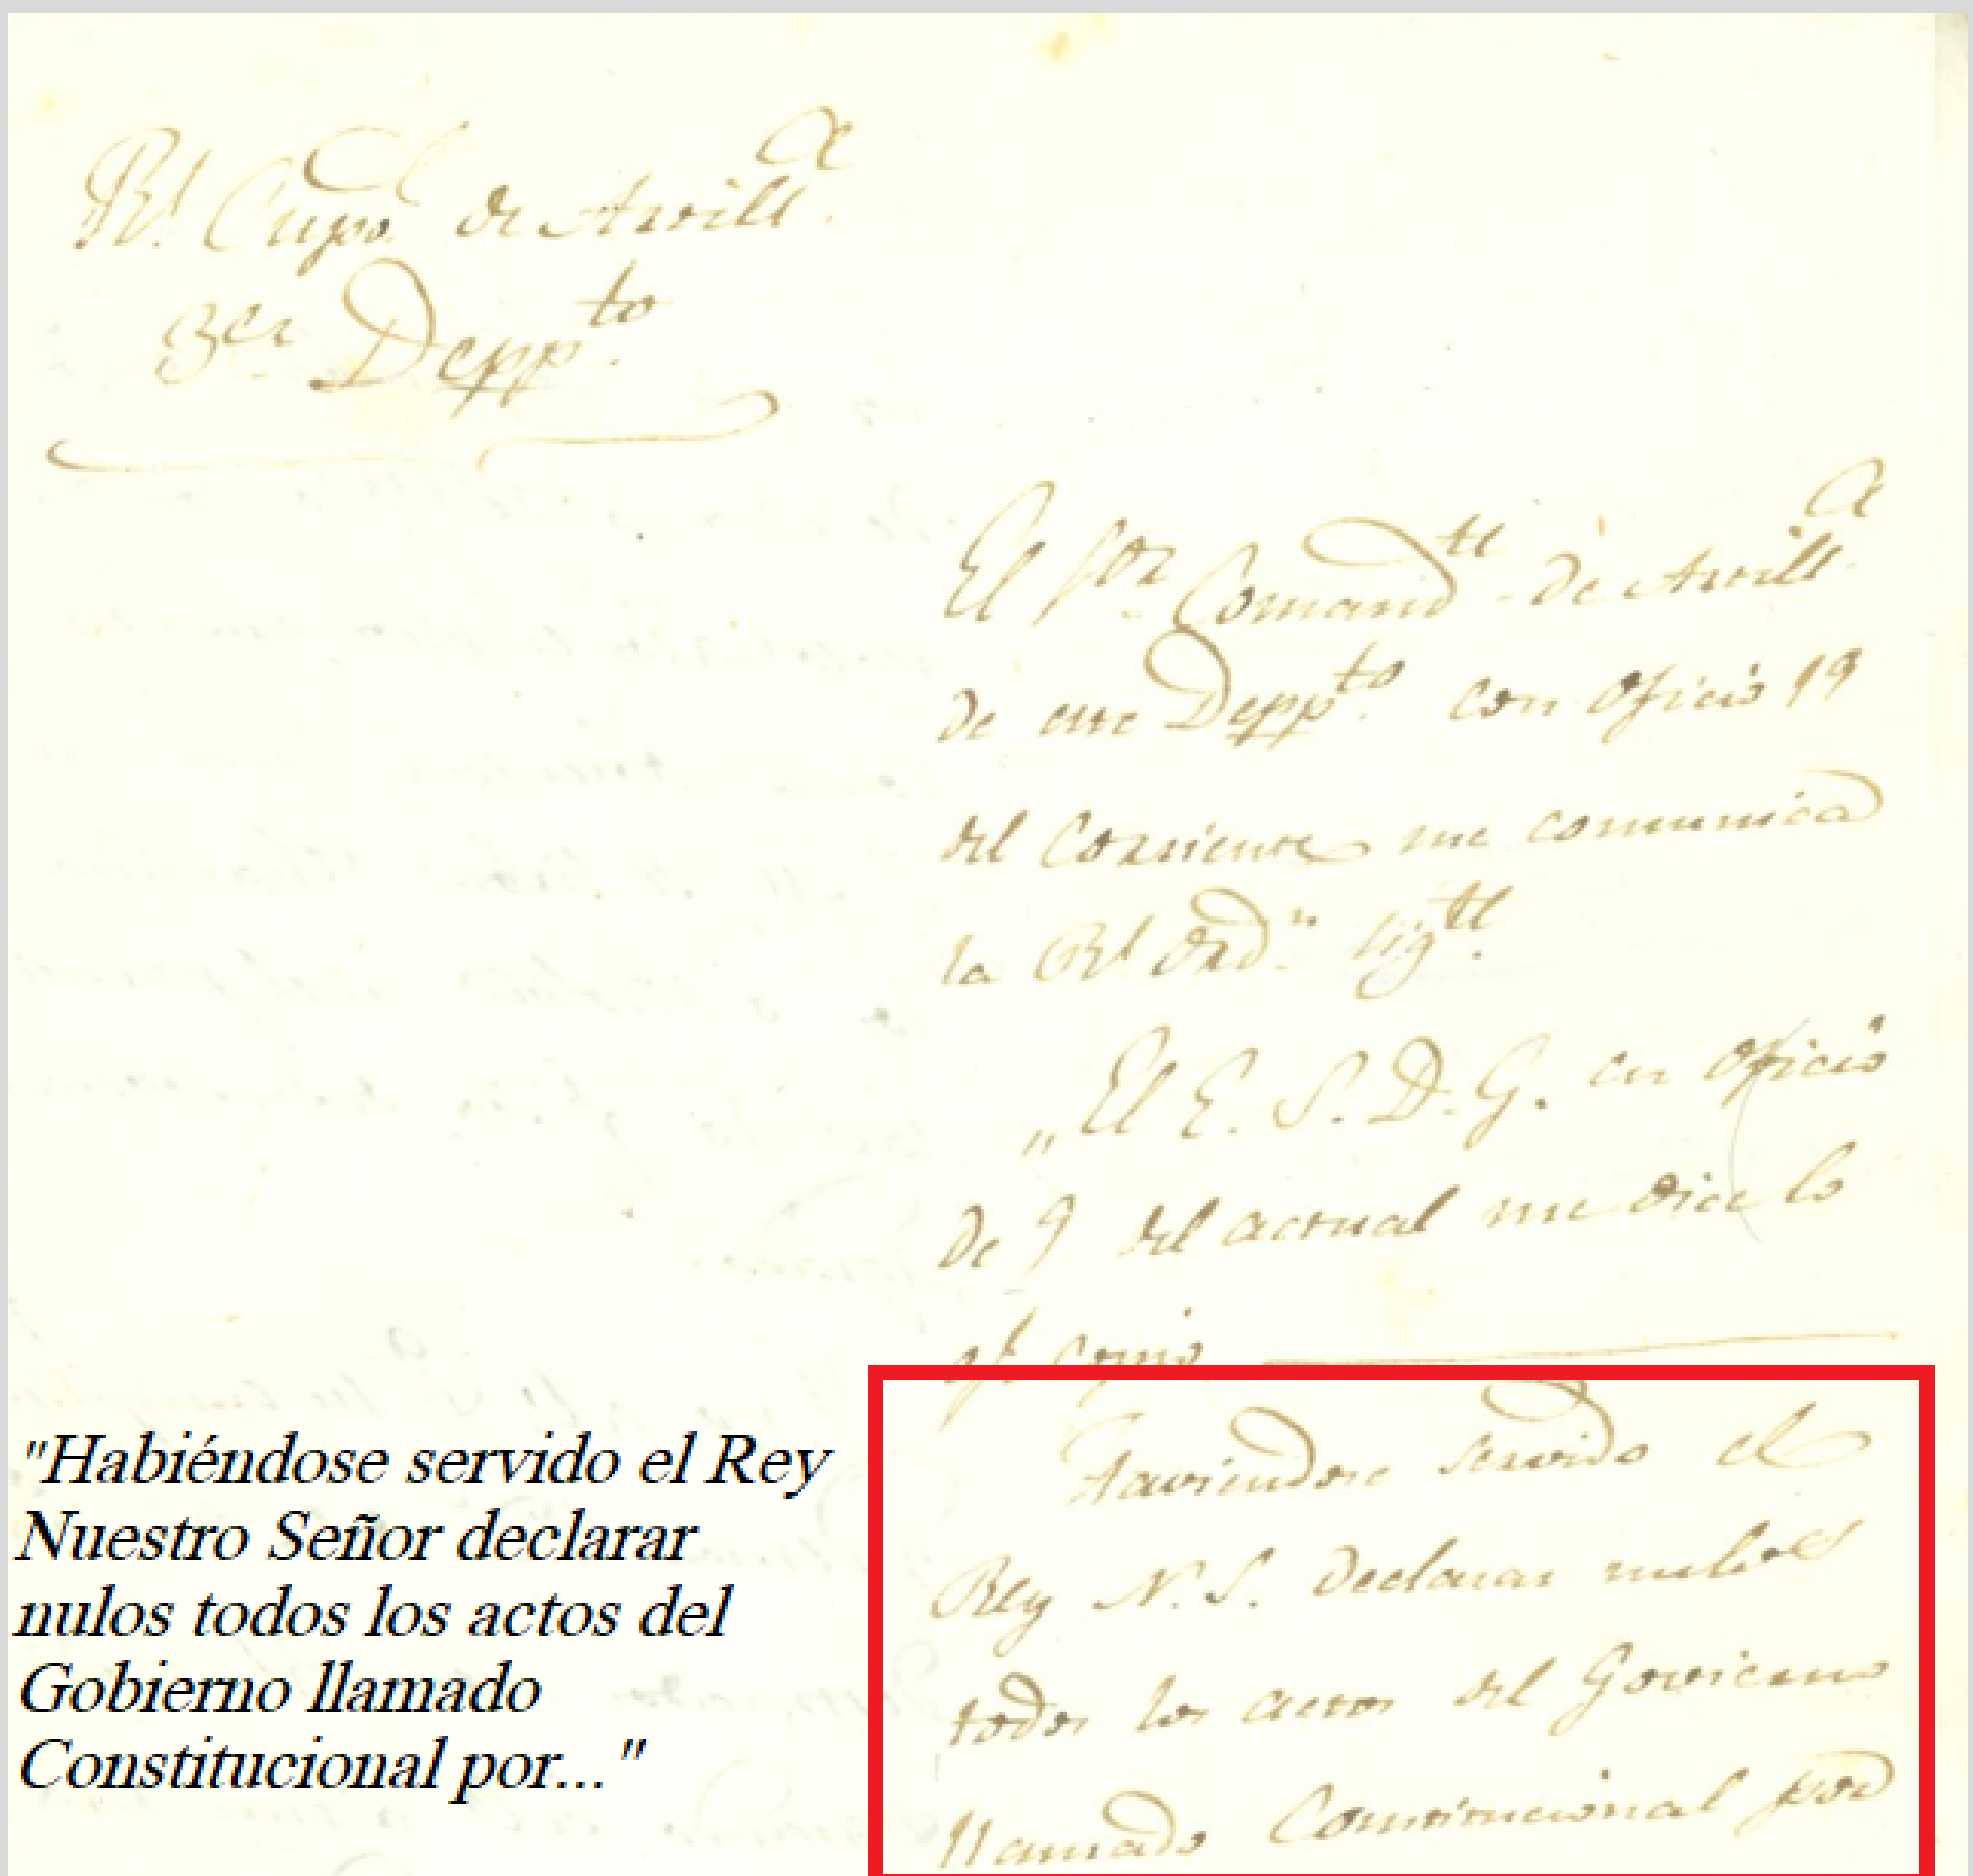 Rl Cupo. de Artilla.
3er Deppto.
El Sor Comandte de Artilla.
de este Deppto. con oficio 19
del Corriente me comunica
la Rl ordn. sigte.
„El E. S. D. G. en oficio
de 9 del actual me dice lo
qe. copio
"Habiéndose servido el Rey
Nuestro Señor declarar
nulos todos los actos del
Gobierno llamado
Constitucional por..."
Haviendose servido el
Rey N. S. declarar nulos
todos los actos del Govierno
llamado Constitucional por